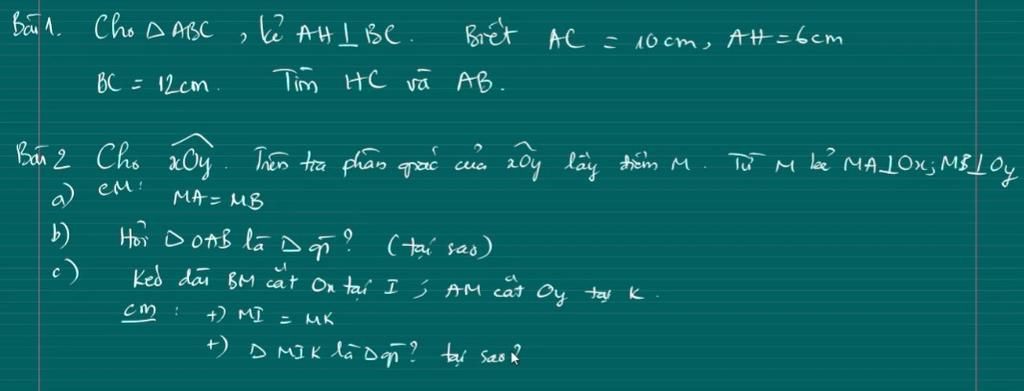 Bài 1. Cho △ABC, kẻ AH⊥BC. Biết AC = 10cm, AH = 6cm
BC = 12cm. Tìm HC và AB.
Bài 2 Cho xOy. Trên tia phân giác của xOy lấy điểm M. Từ M kẻ MA⊥Ox; MB⊥Oy
a) CM: MA = MB
b) Hỏi △OAB là △ gì? (tại sao)
c) Kéo dài BM cắt Ox tại I; AM cắt Oy tại K.
cm: +) MI = MK
+) △MIK là △ gì? tại sao?